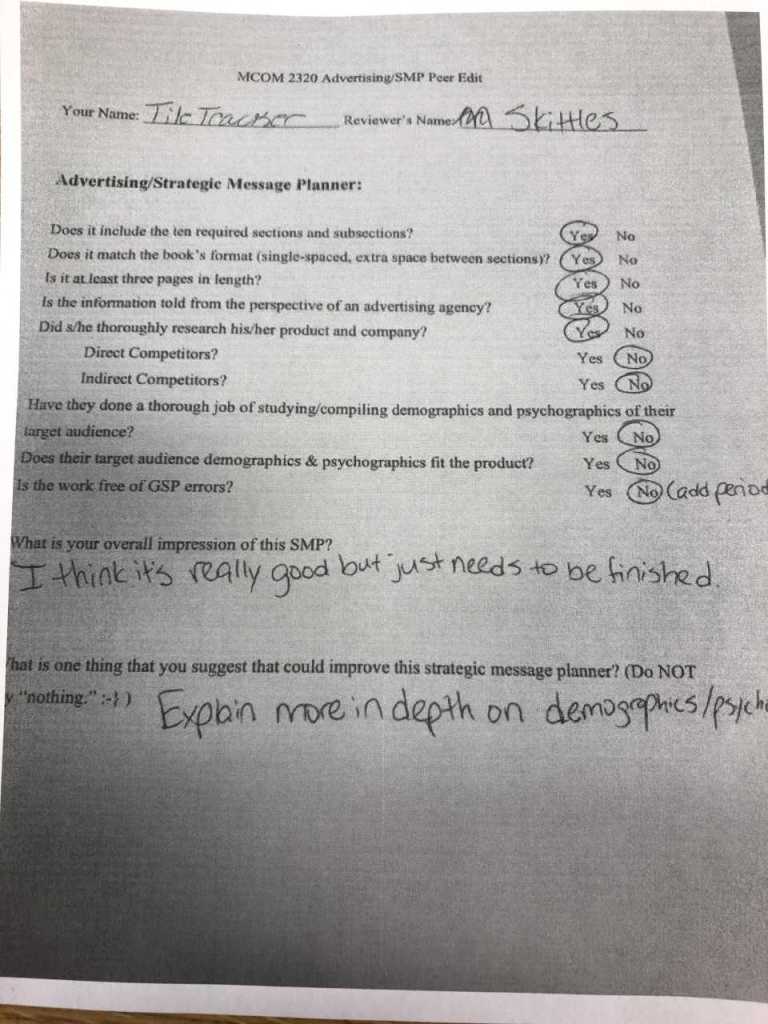 MCOM 2320 Advertising/SMP Peer Edit
Your Name: Tile Tracker Reviewer's Name: Skittles
Advertising/Strategic Message Planner:
Does it include the ten required sections and subsections? Yes No
Does it match the book's format (single-spaced, extra space between sections)? Yes No
Is it at least three pages in length? Yes No
Is the information told from the perspective of an advertising agency? Yes No
Did s/he thoroughly research his/her product and company? Yes No
Direct Competitors? Yes No
Indirect Competitors? Yes No
Have they done a thorough job of studying/compiling demographics and psychographics of their
target audience? Yes No
Does their target audience demographics & psychographics fit the product? Yes No
Is the work free of GSP errors? Yes No (add period
What is your overall impression of this SMP?
I think it's really good but just needs to be finished.
hat is one thing that you suggest that could improve this strategic message planner? (Do NOT
y "nothing." :-} )
Explain more in depth on demographics/psych